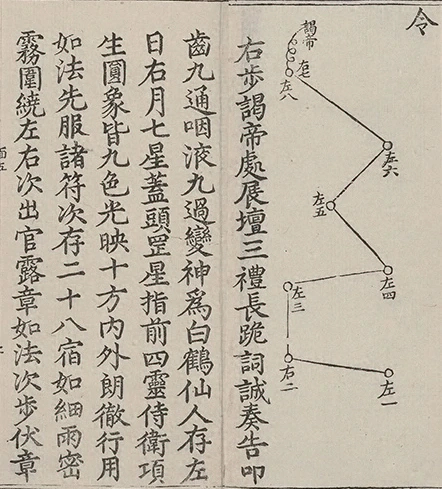 令
謁帝
右七
左八
左六
左五
左四
左三
右二
左一
右步謁帝處展壇三禮長跪詞誠奏告叩
齒九通咽液九過變神為白鶴仙人存左
日右月七星蓋頭罡星指前四靈侍衛項
生圓象皆九色光映十方內外朗徹行用
如法先服諸符次存二十八宿如細雨密
霧圍繞左右次出官露章如法次步伏章